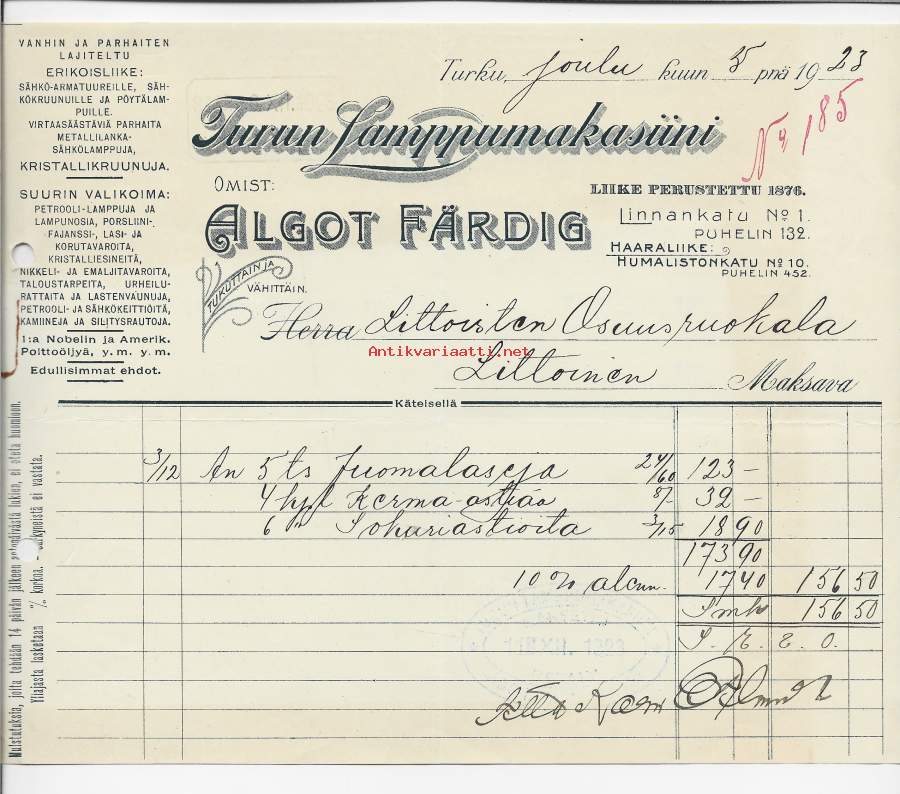 VANHIN JA PARHAITEN
LAJITELTU
ERIKOISLIIKE:
SÄHKÖ-ARMATUUREILLE, SÄH-
KÖKRUUNUILLE JA PÖYTÄLAM-
PUILLE.
VIRTAASÄÄSTÄVIÄ PARHAITA
METALLILANKA-
SÄHKÖLAMPPUJA,
KRISTALLIKRUUNUJA.
SUURIN VALIKOIMA:
PETROOLI-LAMPPUJA JA
LAMPUNOSIA, PORSLIINI-
FAJANSSI-, LASI- JA
KORUTAVAROITA,
KRISTALLIESINEITÄ,
NIKKELI- JA EMALJITAVAROITA,
TALOUSTARPEITA, URHEILU-
RATTAITA JA LASTENVAUNUJA,
PETROOLI- JA SÄHKÖKEITTIÖITÄ,
KAMIINEJA JA SILITYSRAUTOJA.
1:a Nobelin ja Amerik.
Polttoöljyä, y. m. y. m.
Edullisimmat ehdot.
Turku, joulu kuun 5 pnä 1923
Nº 185
Turun Lamppumakasiini
OMIST:
ALGOT FÄRDIG
LIIKE PERUSTETTU 1876.
Linnankatu Nº 1.
PUHELIN 132.
HAARALIIKE:
HUMALISTONKATU Nº 10.
PUHELIN 452.
TUKUTTAIN JA
VÄHITTÄIN.
Herra Littoisten Osuusruokala
Antikvariaatti.net
Littoinen Maksava
Käteisellä
3/12 An 5 ts Juomalaseja 24/60 123 –
4 kpl Kerma-astiaa 8/- 39 –
6 " Sokuriastioita 3/15 18 90
173 90
10 % alenn. 17 40 156 50
Smk 156 50
S. E. & O.
Muistutuksia, joita tehdään 14 päivän jälkeen antopäivästä lukien, ei oteta huomioon.
Yliajasta lasketaan % korkoa. – Särkyneistä ei vastata.